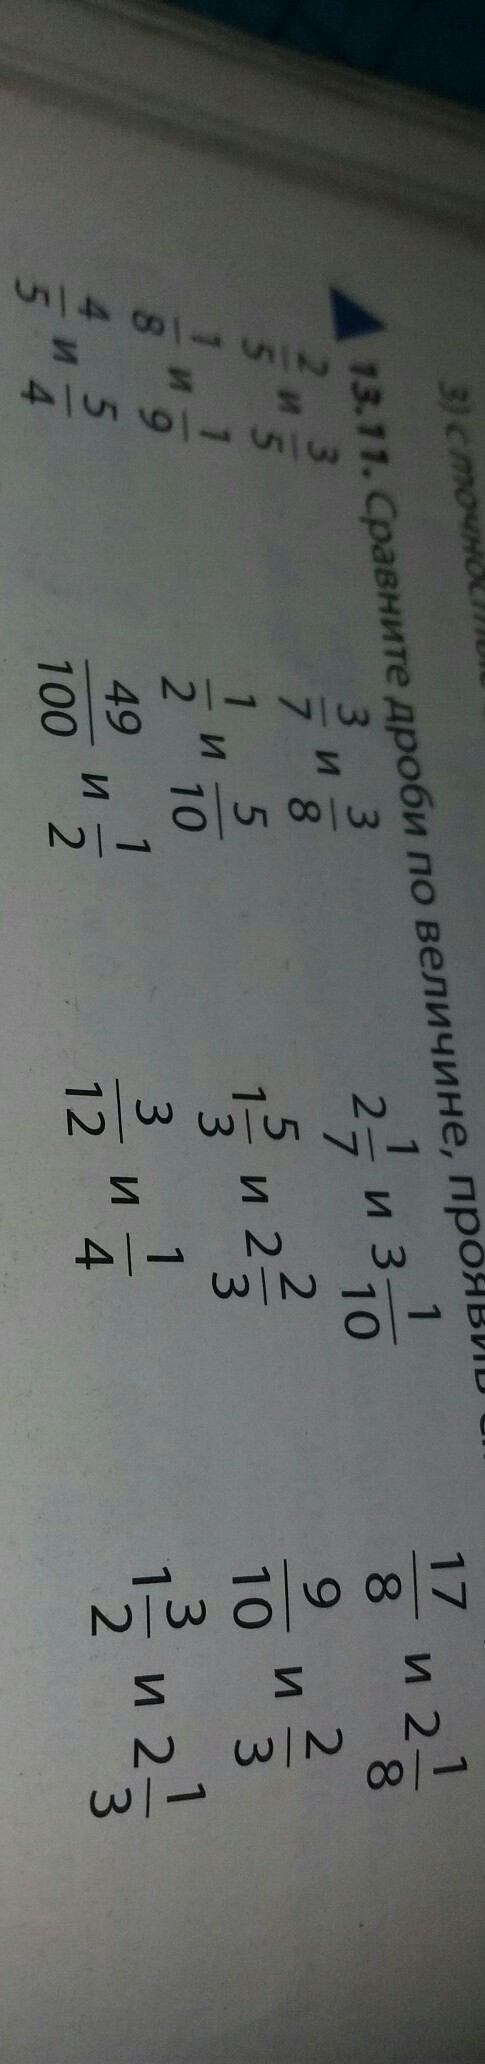 3) с точностью
13.11. Сравните дроби по величине, проявив
2/5 и 3/5 3/7 и 3/8 2 1/7 и 3 1/10 17/8 и 2 1/8
1/8 и 1/9 1/2 и 5/10 1 5/3 и 2 2/3 9/10 и 2/3
4/5 и 5/4 49/100 и 1/2 3/12 и 1/4 1 3/2 и 2 1/3